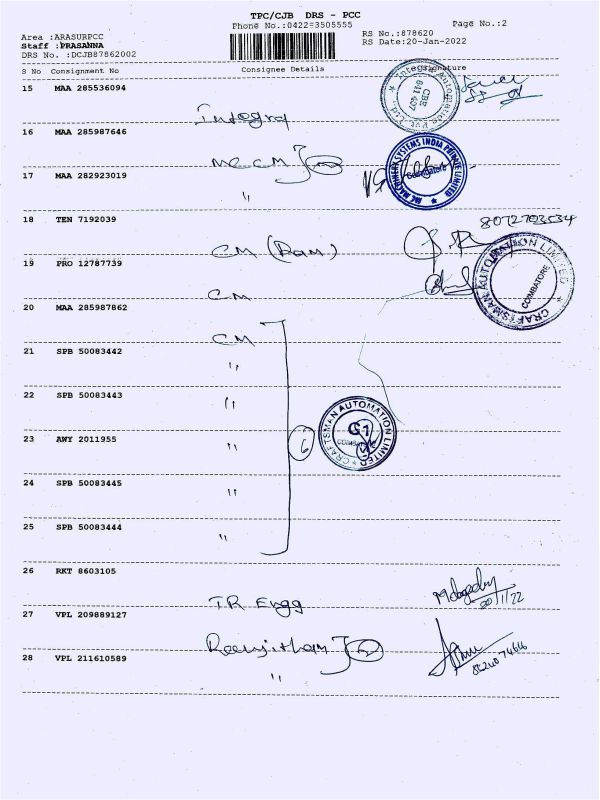 TPC/CJB DRS - PCC
Phone No.:0422-3505555
Page No.:2
Area :ARASURPCC
RS No.:878620
Staff :PRASANNA
RS Date:20-Jan-2022
DRS No. :DCJB87862002
S No Consignment No Consignee Details Signature
15 MAA 285536094
Integra
16 MAA 285987646
MCCM
17 MAA 282923019
"
MC MACHINERY SYSTEMS INDIA PRIVATE LIMITED
Coimbatore
18 TEN 7192039
CM (Ram)
19 PRO 12787739
CM
CRAFTSMAN AUTOMATION LIMITED
COIMBATORE
20 MAA 285987862
CM
21 SPB 50083442
"
22 SPB 50083443
"
23 AWY 2011955
"
6
CRAFTSMAN AUTOMATION LIMITED
COIMBATORE
24 SPB 50083445
"
25 SPB 50083444
"
26 RKT 8603105
TR Engg
20/1/22
27 VPL 209889127
28 VPL 211610589
"